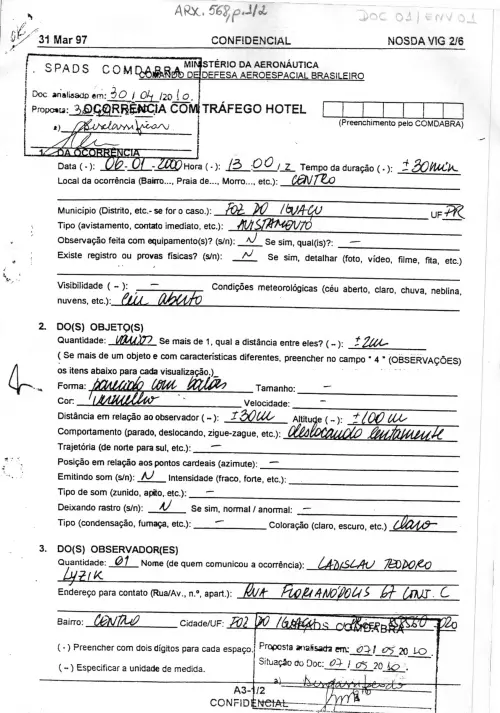 ARX. 568, p.1/2
DOC 01/ENV 01
31 Mar 97 CONFIDENCIAL NOSDA VIG 2/6
SPADS COMDABRA MINISTÉRIO DA AERONÁUTICA
COMANDO DE DEFESA AEROESPACIAL BRASILEIRO
Doc analisado em: 30 / 04 /20 10.
Proposta:
OCORRÊNCIA COM TRÁFEGO HOTEL
(Preenchimento pelo COMDABRA)
a) Desclassificar
1. DA OCORRÊNCIA
Data (-): 06-01-2000 Hora (-): 13 00 / Z Tempo da duração (-): ± 30min
Local da ocorrência (Bairro..., Praia de..., Morro..., etc.): CENTRO
Município (Distrito, etc.- se for o caso.): FOZ DO IGUAÇU UF PR
Tipo (avistamento, contato imediato, etc.): AVISTAMENTO
Observação feita com equipamento(s)? (s/n): N Se sim, qual(is)?: —
Existe registro ou provas físicas? (s/n): N Se sim, detalhar (foto, vídeo, filme, fita, etc.)
Visibilidade ( – ): — Condições meteorológicas (céu aberto, claro, chuva, neblina,
nuvens, etc.): céu aberto
2. DO(S) OBJETO(S)
Quantidade: vários Se mais de 1, qual a distância entre eles? ( – ): ± 2m
( Se mais de um objeto e com características diferentes, preencher no campo " 4 " (OBSERVAÇÕES)
os itens abaixo para cada visualização.)
Forma: parecido com balão Tamanho: —
Cor: vermelho Velocidade: —
Distância em relação ao observador ( – ): ± 30m Altitude ( – ): ± 100 m
Comportamento (parado, deslocando, zigue-zague, etc.): deslocando lentamente
Trajetória (de norte para sul, etc.): —
Posição em relação aos pontos cardeais (azimute): —
Emitindo som (s/n): N Intensidade (fraco, forte, etc.): —
Tipo de som (zunido, apito, etc.): —
Deixando rastro (s/n): N Se sim, normal / anormal: —
Tipo (condensação, fumaça, etc.): — Coloração (claro, escuro, etc.) claro
3. DO(S) OBSERVADOR(ES)
Quantidade: 01 Nome (de quem comunicou a ocorrência): LADISLAU TEODORO
LYZIK
Endereço para contato (Rua/Av., n.º, apart.): RUA FLORIANÓPOLIS 67 CONJ. C
Bairro: CENTRO Cidade/UF: FOZ DO IGUAÇU
SPADS COMDABRA
( - ) Preencher com dois dígitos para cada espaço.
Proposta analisada em: 07 / 05 20 10.
( – ) Especificar a unidade de medida.
Situação do Doc: 07 / 05 20 10.
a) Desclassificado
A3-1/2
CONFIDENCIAL